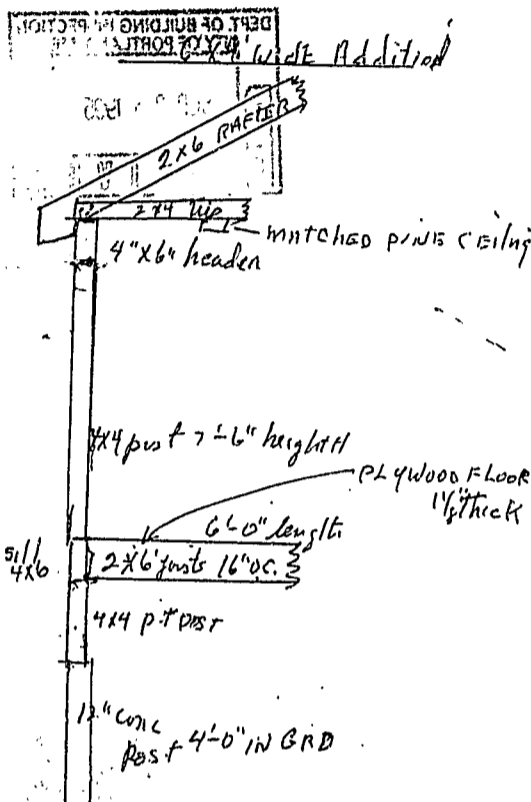 DEPT. OF BUILDING INSPECTION
CITY OF PORTLAND
Wide Addition
1985
2x6 RAFTER
2x4
MATCHED PINE CEiling
4"X6" header
4x4 post 7'-6" height
PLYWOOD FLOOR
1 1/8" Thick
6'-0" length
Sill
4X6
2X6 joists 16" O.C.
4x4 p.t post
12" conc
Post 4'-0" IN GRD